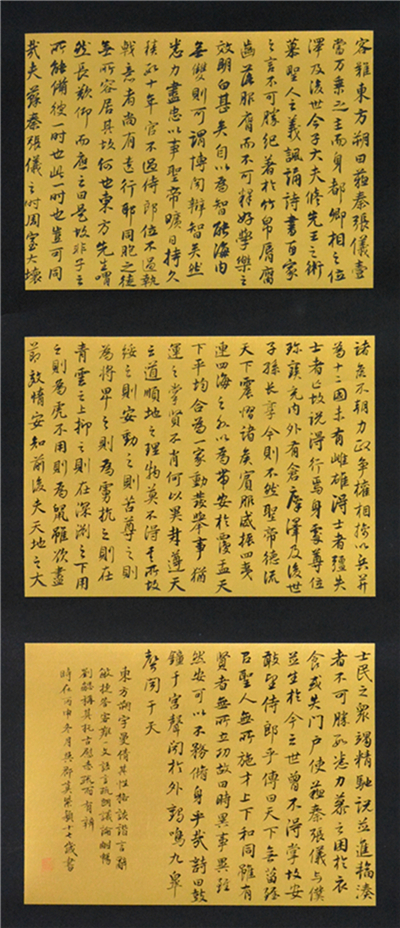 客難東方朔曰蘇秦張儀壹
當萬乘之主而身都卿相之位
澤及後世今子大夫修先王之術
慕聖人之義諷誦詩書百家
之言不可勝紀著於竹帛唇腐
齒落服膺而不可釋好學樂之
效明白甚矣自以為智能海內
無雙則可謂博聞辯智矣然
悉力盡忠以事聖帝曠日持久
積數十年官不過侍郎位不過執
戟意者尚有遺行耶同胞之徒
無所容居其故何也東方先生喟
然長歎仰而應之曰是故非子之
所能備彼一時也此一時也豈可同
哉夫蘇秦張儀之時周室大壞
諸侯不朝力政爭權相擒以兵并
為十二國未有雌雄得士者彊失
士者亡故說得行焉身處尊位
珍寶充內外有倉廩澤及後世
子孫長享今則不然聖帝德流
天下震慴諸侯賓服威振四夷
連四海之外以為帶安於覆盂天
下平均合為一家動發舉事猶
運之掌賢不肖何以異哉遵天
之道順地之理物莫不得其所故
綏之則安動之則苦尊之則
為將卑之則為虜抗之則在
青雲之上抑之則在深淵之下用
之則為虎不用則為鼠雖欲盡
節效情安知前後夫天地之大
士民之眾竭精馳說並進輻湊
者不可勝數悉力慕之困於衣
食或失門戶使蘇秦張儀與僕
並生於今之世曾不得掌故安
敢望侍郎乎傳曰天下無菑雖
有聖人無所施才上下和同雖有
賢者無所立功故曰時異事異雖
然安可以不務修身乎哉詩曰鼓
鐘于宮聲聞於外鶴鳴九皋
聲聞于天
東方朔字曼倩其性格詼諧言辭
敏捷答客難一文語言疏朗議論酣暢
劉勰稱其托古慰志疏而有辨
時在丙申冬月吳郡莫穎十七歲書